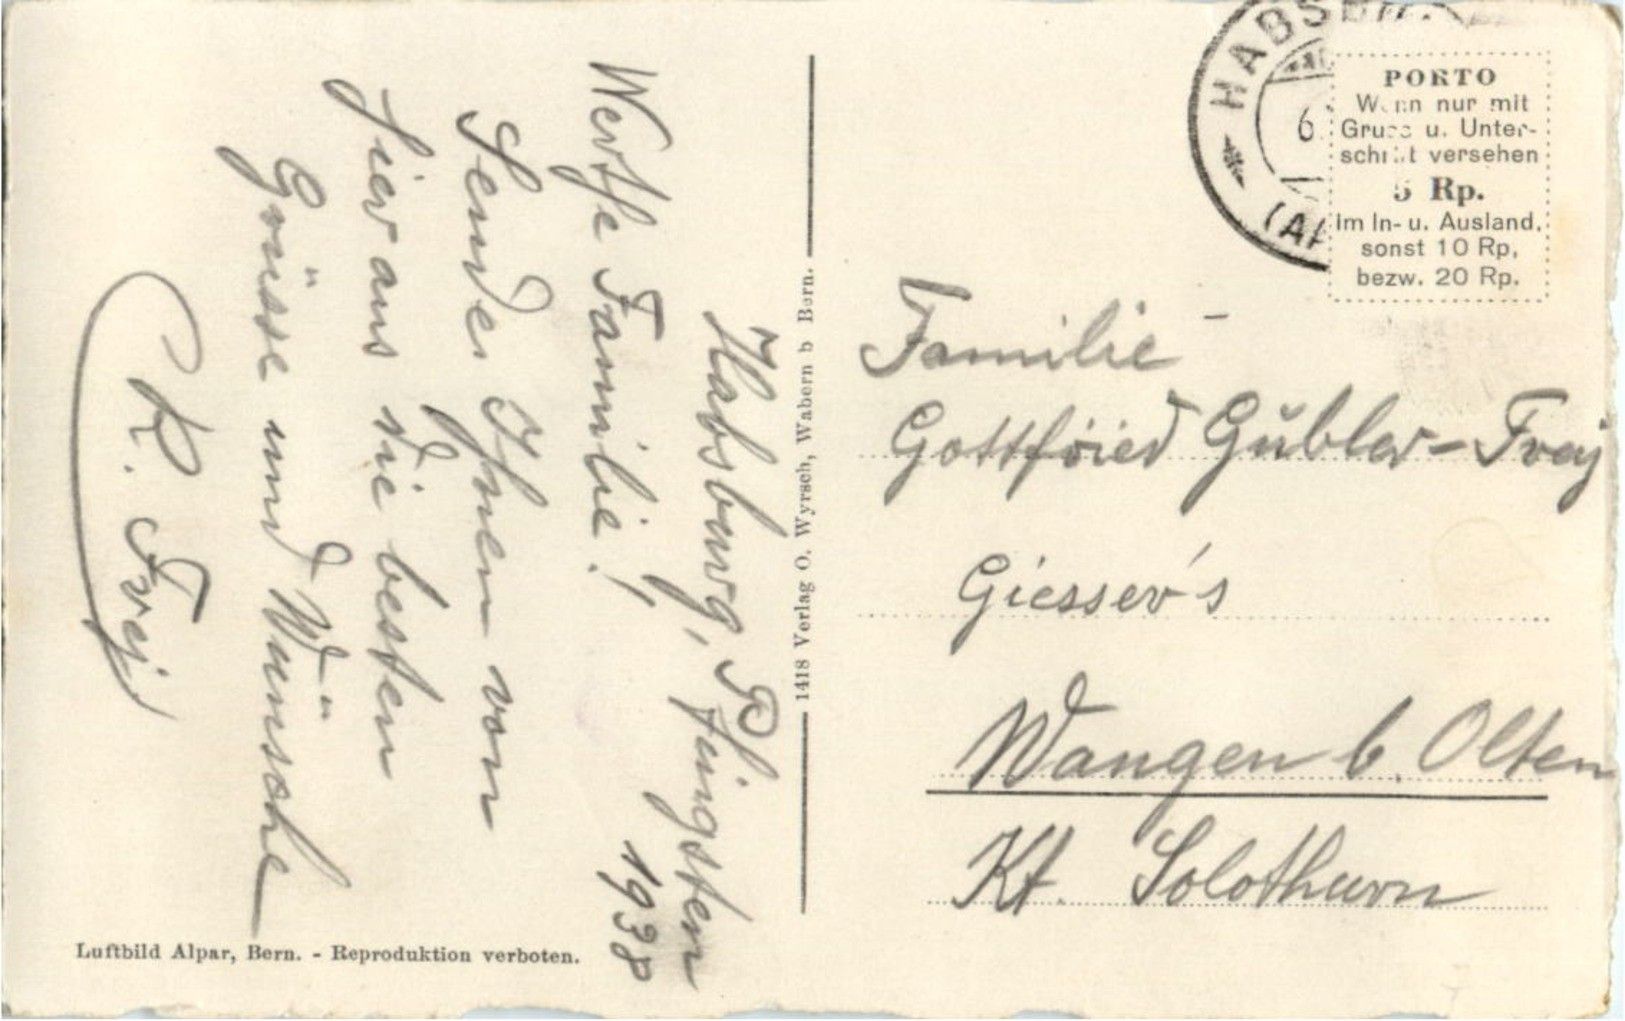 Habsburg, Pfingsten
1938
Werthe Familie!
Sende Ihnen von
hier aus die besten
Grüsse und Wünsche
K. Frej
Luftbild Alpar, Bern. - Reproduktion verboten.
1418 Verlag O. Wyrsch, Wabern b Bern.
PORTO
Wenn nur mit
Gruss u. Unter-
schrift versehen
5 Rp.
Im In- u. Ausland,
sonst 10 Rp,
bezw. 20 Rp.
Familie
Gottfried Gŭbler-Frej
Giesser's
Wangen b. Olten
Kt. Solothurn